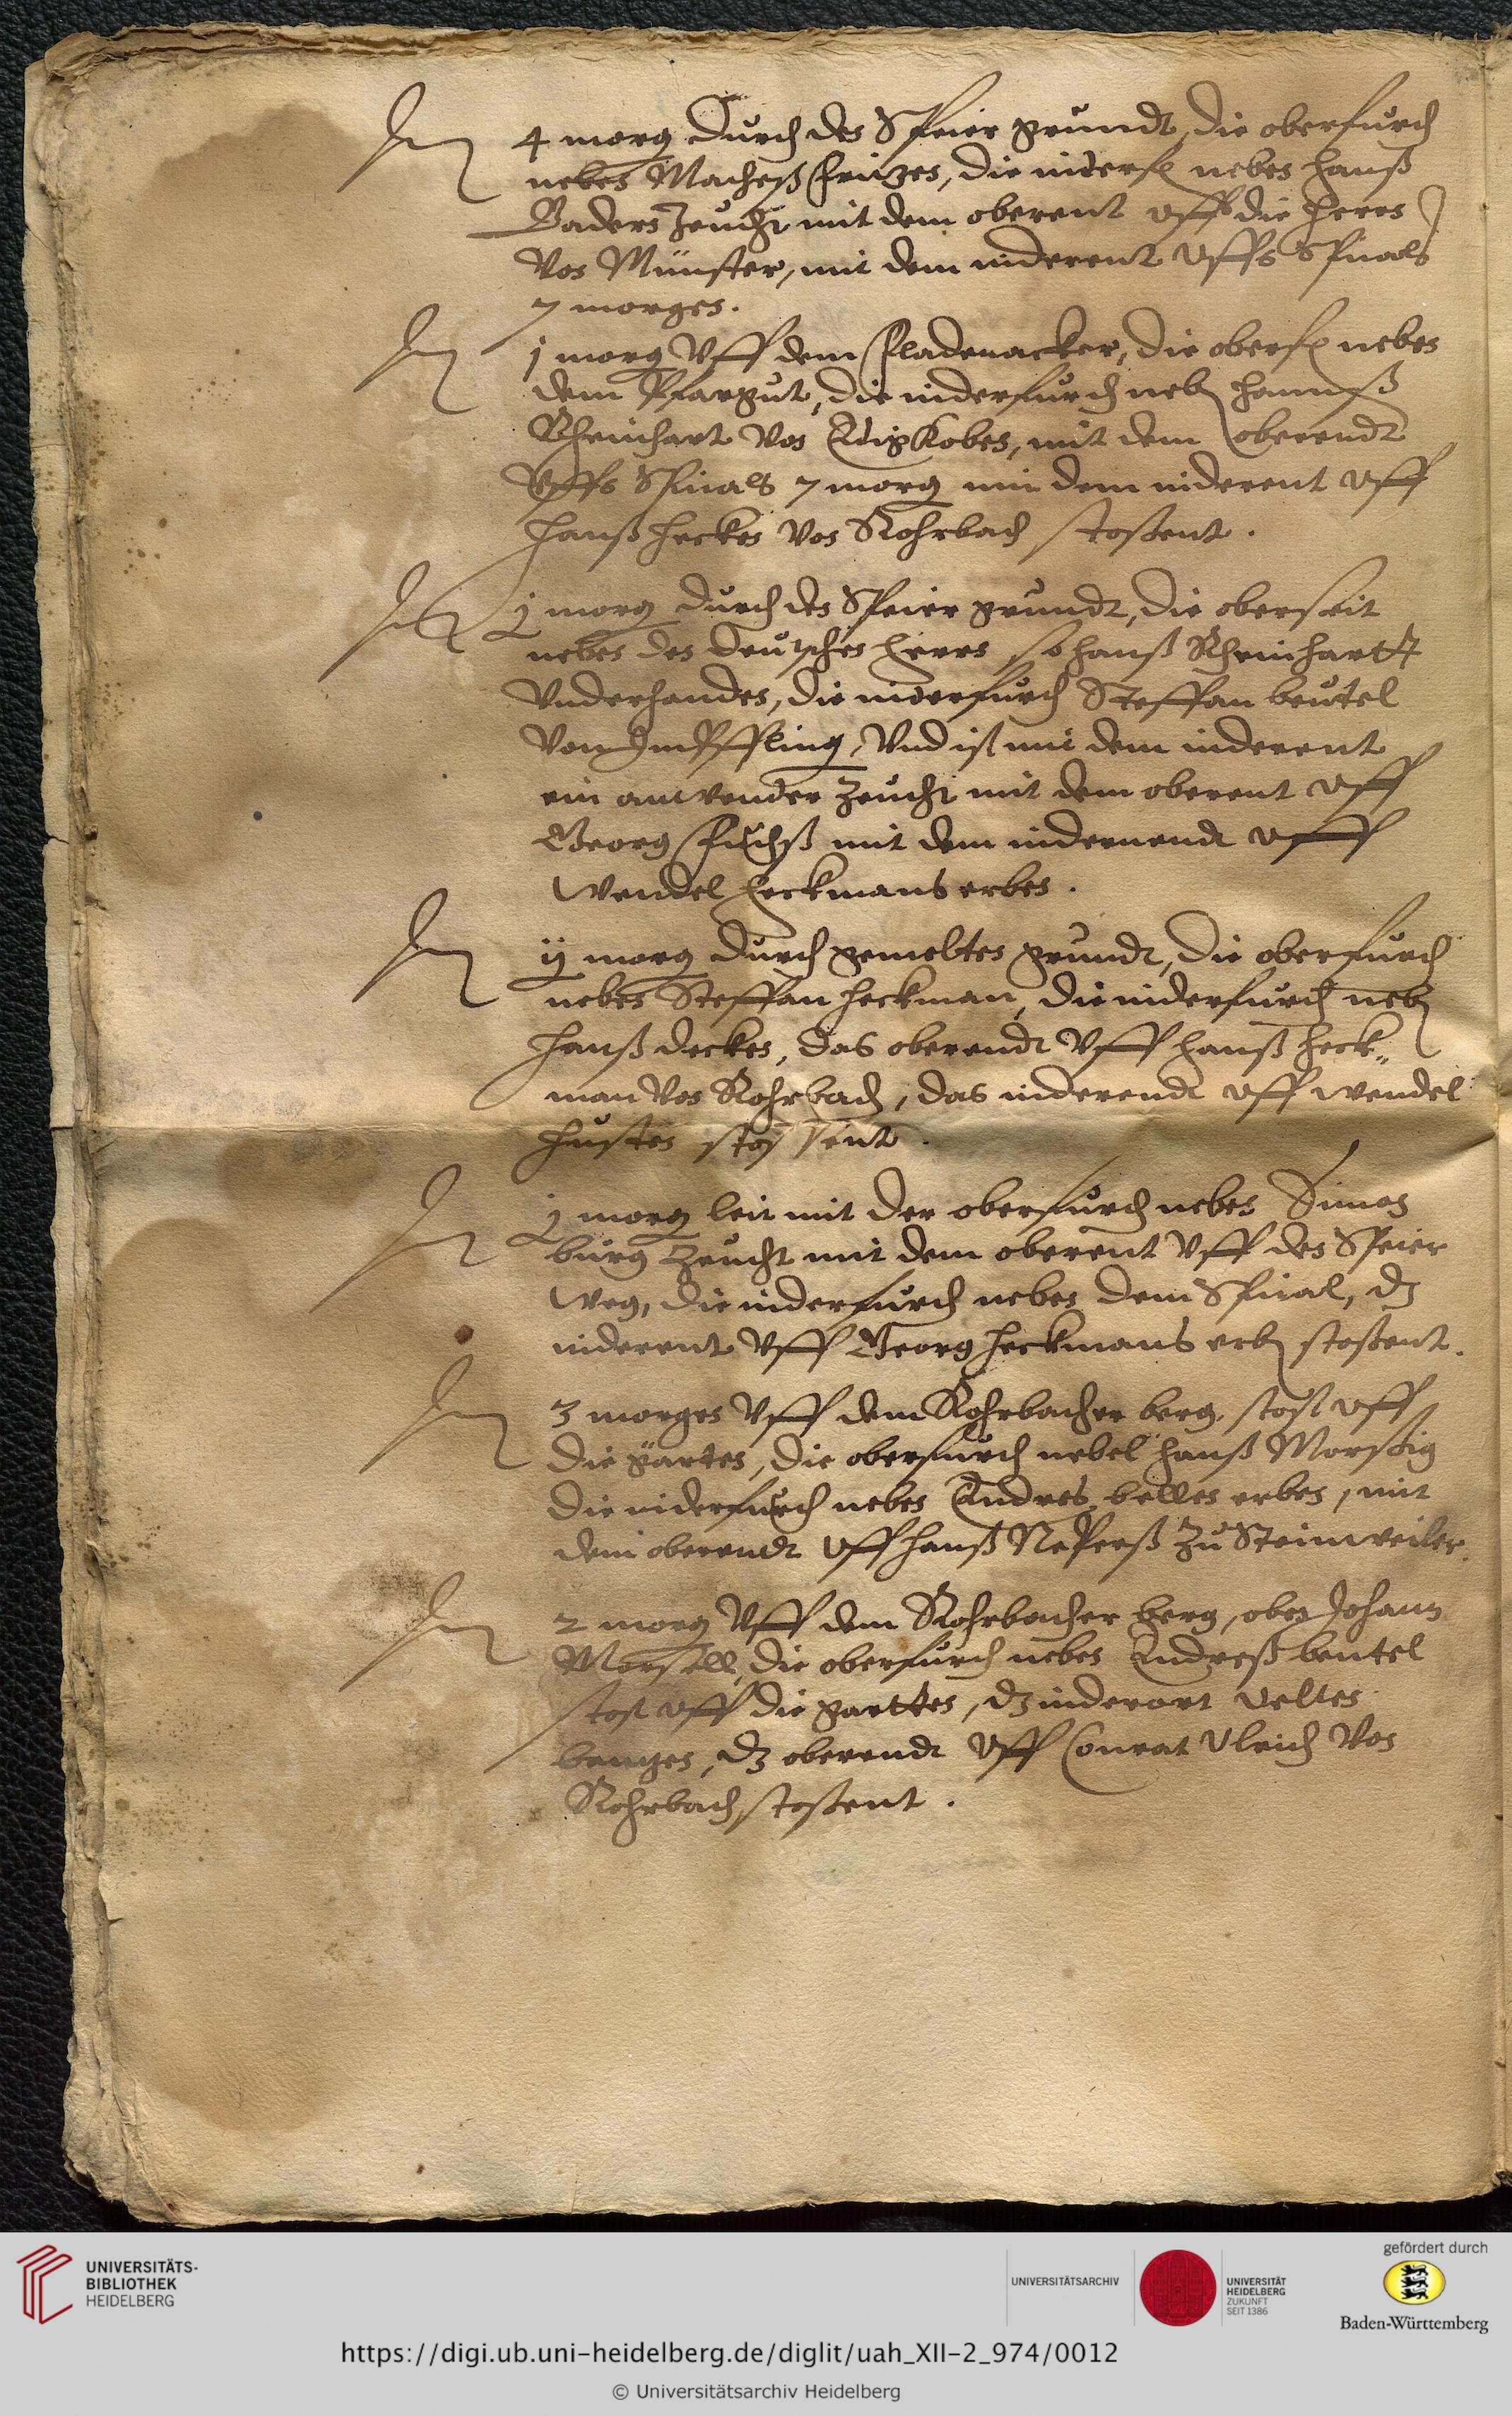 Jtem 4 morg durch des Speier grundt, die oberfurch
neben Macheß Fritzen, die niderf. neben Hanß
Baders Zeucht mit dem oberent uff die Herren
von Münster, mit dem niderent uffs Spitals
7 morgen.
Jtem j morg Vff dem Fladenacker, die oberf. neben
dem Pfargut, die niderfurch neben Hannß
Rheinhart von, mit dem oberendt
Vffs Spitals 7 morg mit dem niderent uff
Hanß Hecken von Rohrbach stoßent.
Jtem j morg durch des Speier grundt, die oberseit
neben den deutschen Herren so Hanß Rheinhartt
Vnderhanden, die niderfurch Steffan beutel
Von Jmpffling, Vnd ist mit dem niderent
ein anwender Zeucht mit dem oberent uff
Georg Fuchß mit dem niderendt uff
Wendel Heckmans erben.
Jtem ij morg durch gemelten grundt, die oberfurch
neben Steffan Heckman, die niderfurch neben
Hanß decken, das oberendt Vff Hanß Heck„
man von Rohrbach, das niderendt uff Wendel
Husten stossent.
Jtem j morg leit mit der oberfurch neben Simon
burg Zeucht mit dem oberent Vff den Speier
Weg, die niderfurch neben dem Spital, dz
niderent Vff Georg Heckmans erben stoßent.
Jtem 3 morgen Vff dem Rohrbacher berg, stost uff
die gärten, die oberfurch nebel Hanß
die niderfurch neben Andres bellen erben, mit
dem oberendt uff Hanß zu Steinweiler.
Jtem 2 morg Vff dem Rohrbacher berg, oben Johann
die oberfurch neben Andreß beutel
stost uff die gartten, dz niderort velten
dz oberendt Vff Conrat Ulrich von
Rohrbach stoßent.
UNIVERSITÄTS-
BIBLIOTHEK
HEIDELBERG
UNIVERSITÄTSARCHIV
UNIVERSITÄT
HEIDELBERG
ZUKUNFT
SEIT 1386
gefördert durch
Baden-Württemberg
https://digi.ub.uni-heidelberg.de/diglit/uah_XII-2_974/0012
© Universitätsarchiv Heidelberg